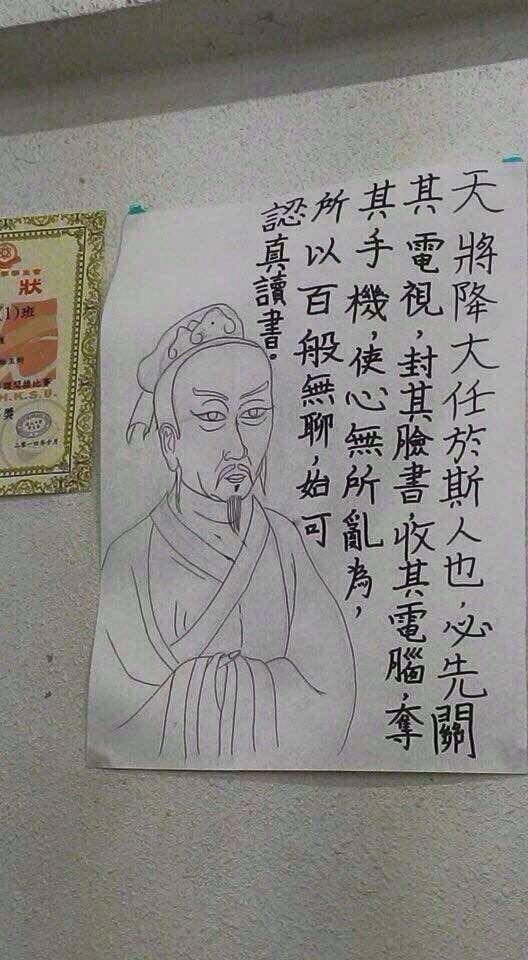 天將降大任於斯人也，必先關
其電視，封其臉書，收其電腦，奪
其手機，使心無所亂為，
所以百般無聊，始可
認真讀書。
學生會
狀
(1)班
比賽
H.K.S.U.
獎
二零一四年十月